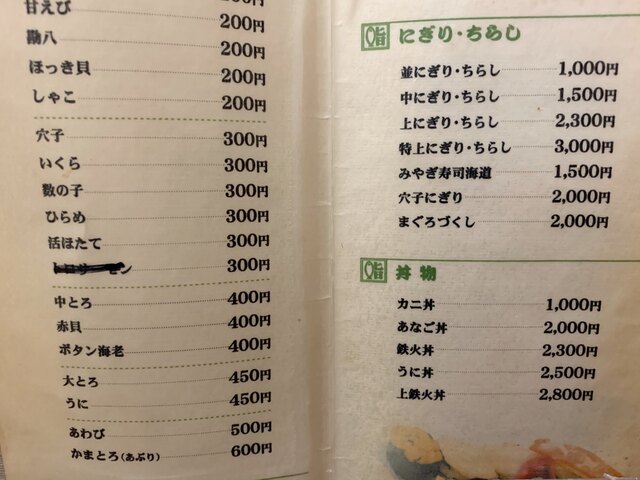 甘えび 200円
勘八 200円
ほっき貝 200円
しゃこ 200円
穴子 300円
いくら 300円
数の子 300円
ひらめ 300円
活ほたて 300円
300円
中とろ 400円
赤貝 400円
ボタン海老 400円
大とろ 450円
うに 450円
あわび 500円
かまとろ(あぶり) 600円
にぎり・ちらし
並にぎり・ちらし 1,000円
中にぎり・ちらし 1,500円
上にぎり・ちらし 2,300円
特上にぎり・ちらし 3,000円
みやぎ寿司海道 1,500円
穴子にぎり 2,000円
まぐろづくし 2,000円
丼物
カニ丼 1,000円
あなご丼 2,000円
鉄火丼 2,300円
うに丼 2,500円
上鉄火丼 2,800円